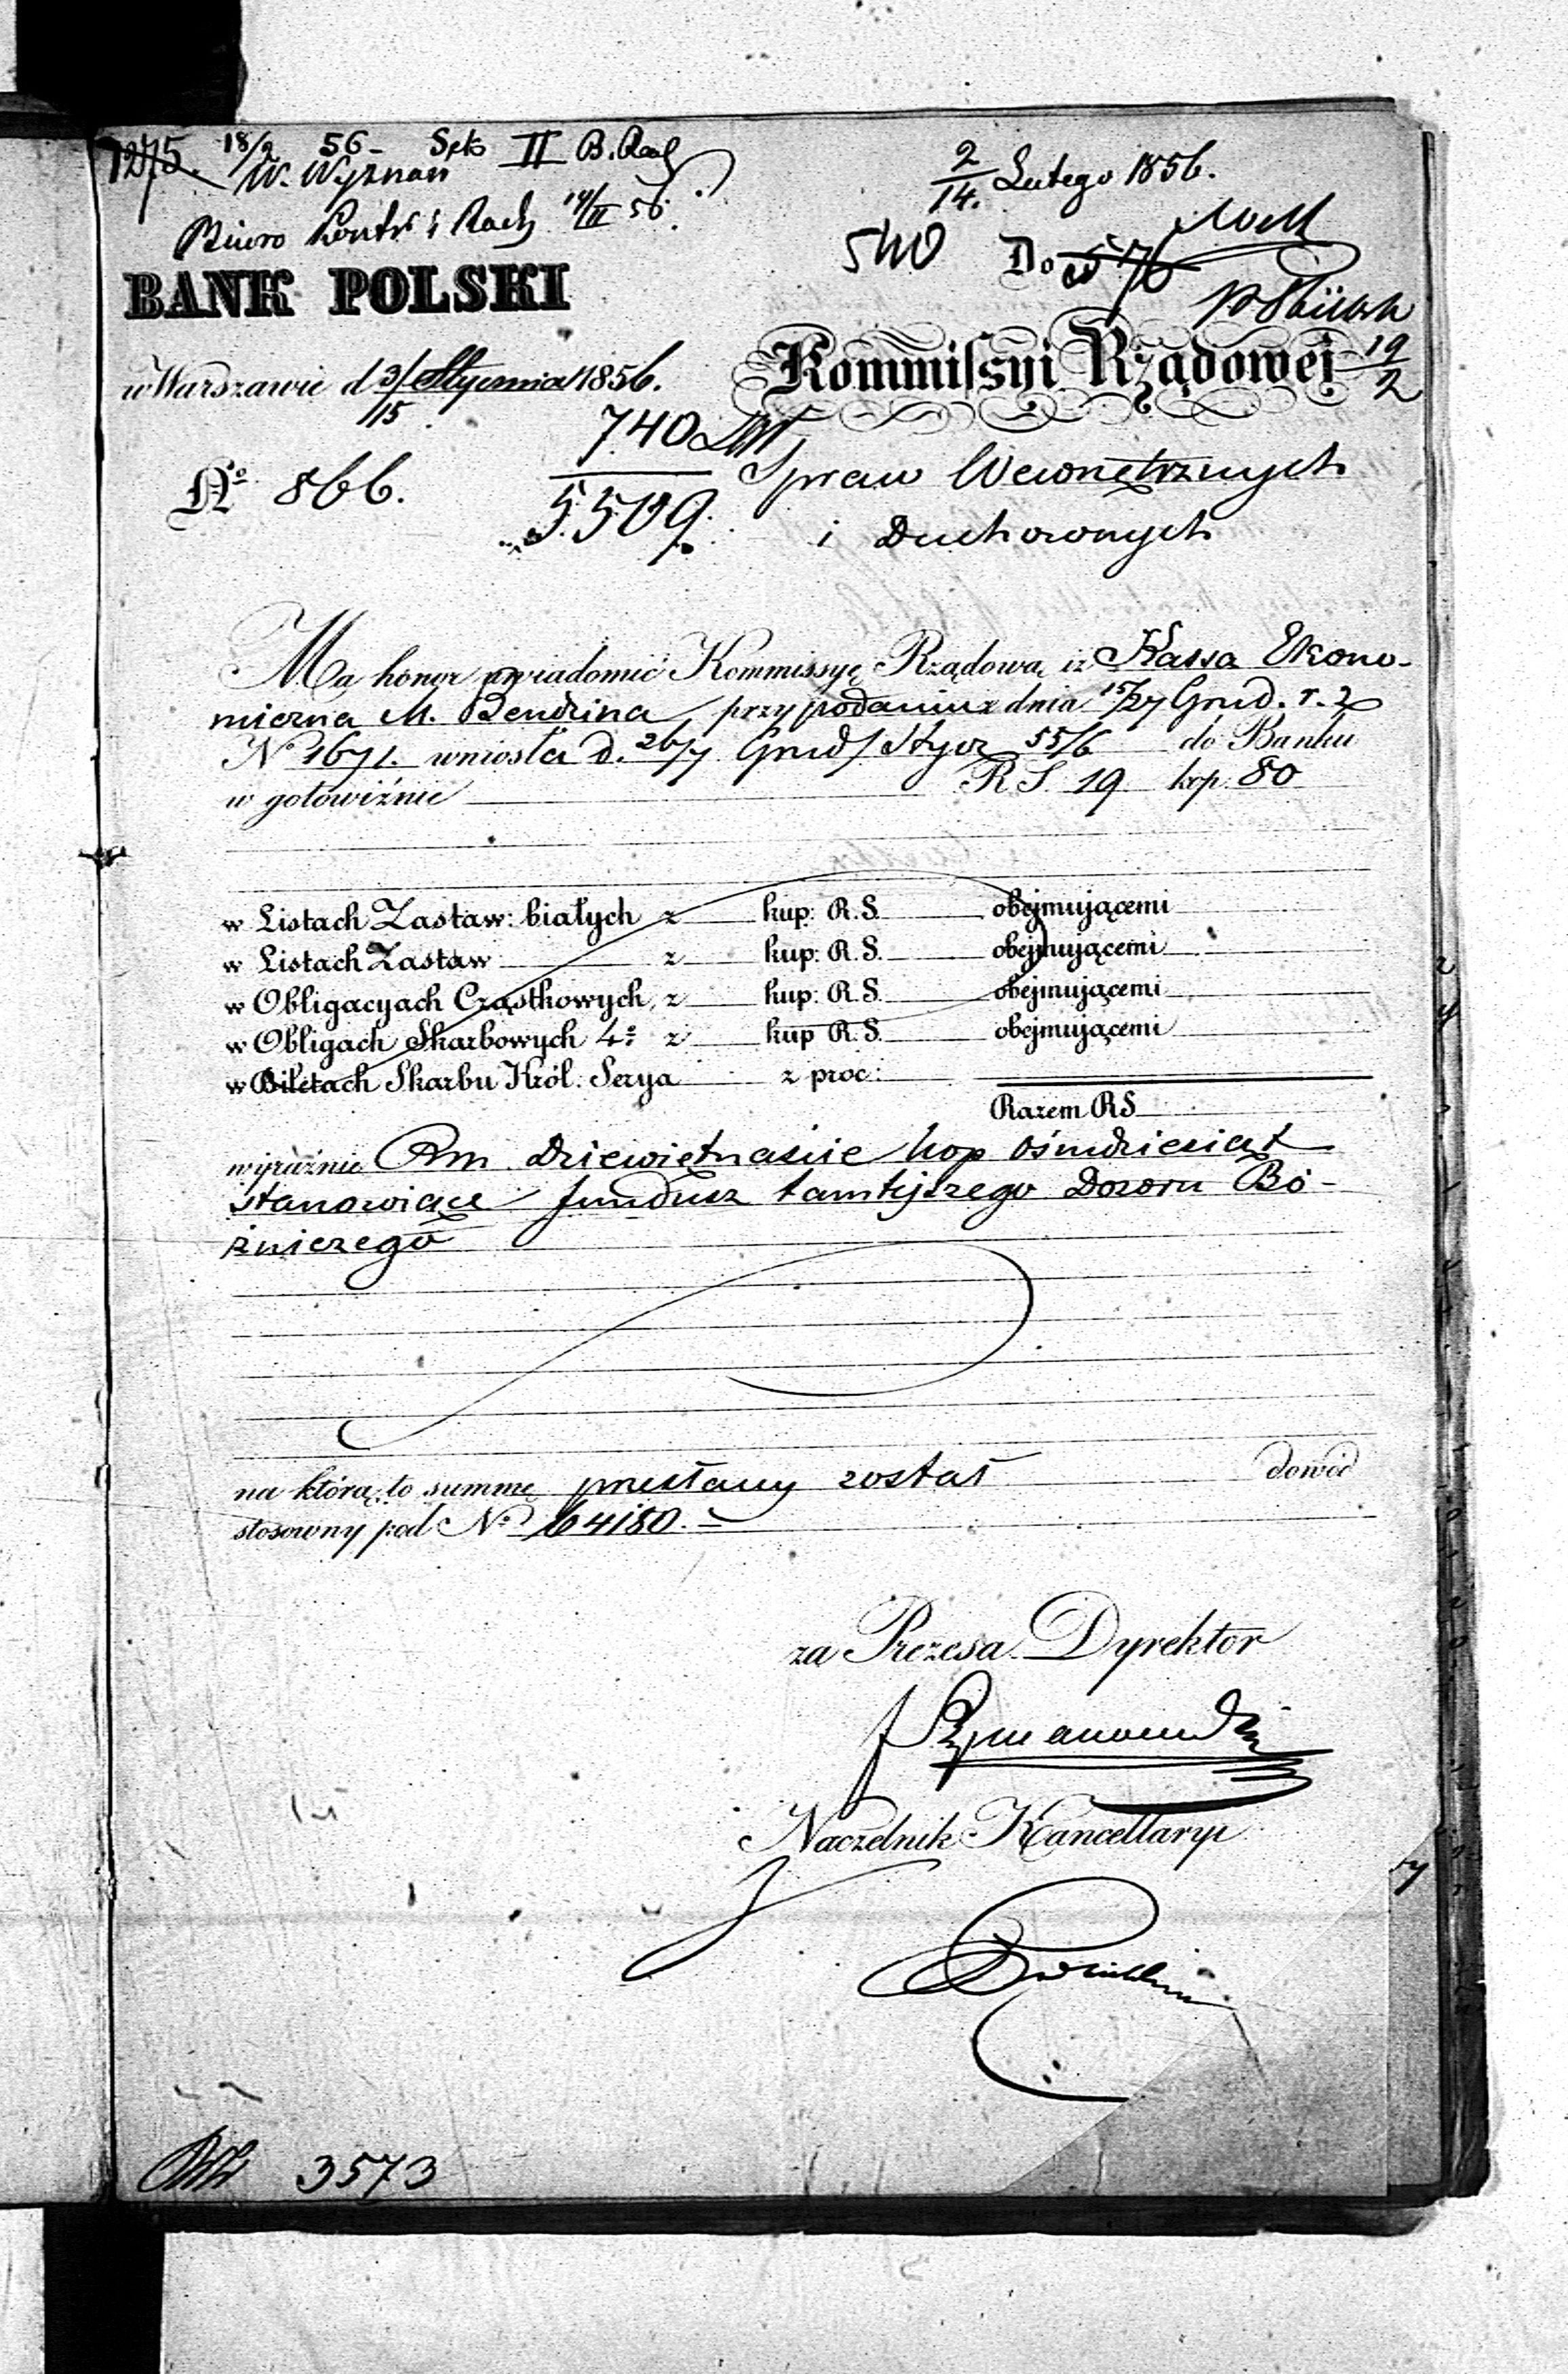 1275. 18/2 56 - II
W. Wyznań
Biuro Kontr i Rach 19/II 56.
2/14. Lutego 1856.
540 Do 576
BANK POLSKI
19/2
w Warszawie d 3/15 Stycznia 1856.
Kommissyi Rządowej
740
5509.
No 866.
Spraw Wewnętrznych
i Duchownych
Ma honor zawiadomić Kommissyę Rządową iż Kassa Ekono-
miczna M. Bendzina przy podaniu z dnia 15/27 Grud. r. z
No 1671. wniosła d. 26/7 Grud/Stycz 55/6 do Banku
w gotowiźnie RS. 19 kop. 80
w Listach Zastaw: białych z kup: R.S. obejmującemi
w Listach Zastaw z kup: R.S. obejmującemi
w Obligacyach Cząstkowych, z kup: R.S. obejmującemi
w Obligach Skarbowych 4% z kup R.S. obejmującemi
w Biletach Skarbu Król. Serya z proc:
Razem RS
wyraźnie dziewiętnaście kop ośmdziesiąt
stanowiące fundusz tamtejszego Dozoru Bó-
żniczego
na którą to summę przesłany został dowód
stosowny pod No 64180.
za Prezesa Dyrektor
Naczelnik Kancellaryi
3573